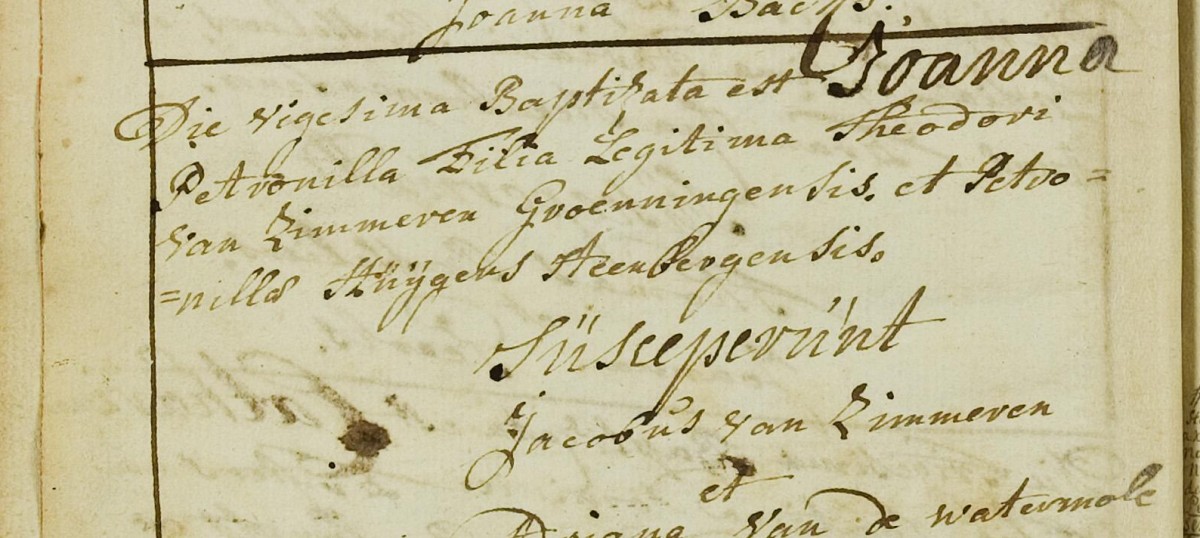 Joanna Backs.
Die vigesima Baptizata est Joanna
Petronilla Filia Legitima Theodori
van Zimmeren Groenningensis. et Petro=
=nilla Hüÿgens Steenbergensis.
Süsceperünt
Jacobus van Zimmeren
et
Adriana van de watermole